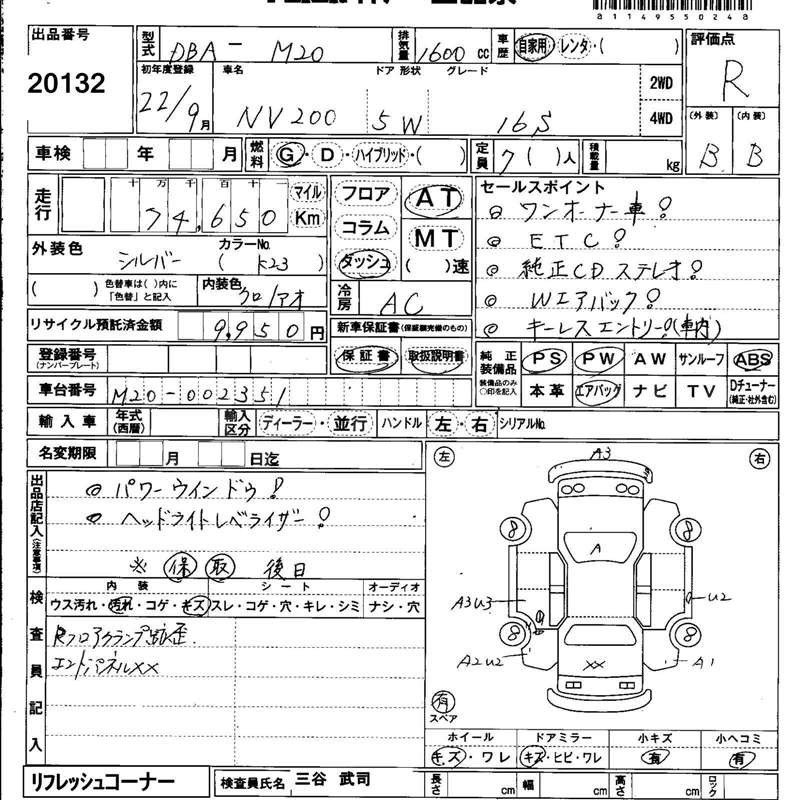 a11495502４8
出品番号 型式 DBA - M20 排気量 1600 cc 車歴 自家用・レンタ・( ) 評価点
20132 R
初年度登録 車名 ドア 形状 グレード 2WD
22/9月 NV200 5 W 16S 4WD
(外装) (内装)
B B
車検 年 月 燃料 G・D・ハイブリッド・( ) 定員 7( )人 積載量 kg
走行 十 万 千 百 十 一 マイル
74,650 Km
フロア コラム ダッシュ
AT MT ( )速
セールスポイント
◎ ワンオーナー車!
◎ ETC!
◎ 純正CDステレオ!
◎ Wエアバック!
◎ キーレスエントリー!(車内)
外装色 シルバー カラーNo. ( K23 )
( ) 色替車は( )内に「色替」と記入 内装色 クロ/アオ
冷房 AC
リサイクル預託済金額 9,950 円 新車保証書(保証継続完備のもの)
登録番号 (ナンバープレート) 保証書 取扱説明書
純正装備品 装備品のみ○印を記入 PS PW AW サンルーフ ABS
本革 エアバッグ ナビ TV Dチューナー (純正・社外含む)
車台番号 M20-002351
輸入車 年式(西暦) 輸入区分 ディーラー・並行 ハンドル 左・右 シリアルNo.
名変期限 月 日迄
左 右
出品店記入(注意事項)
◎ パワーウインドウ!
◎ ヘッドライトレベライザー!
※ 保 取 後日
A3
8 8
A
A3U3 U2
8 8
A2U2 XX A1
有
スペア
検査員記入
内装 シート オーディオ
ウス汚れ・汚れ・コゲ・キズ スレ・コゲ・穴・キレ・シミ ナシ・穴
Rフロアクランプ跡歪
エンドパネルXX
ホイール ドアミラー 小キズ 小ヘコミ
キズ・ワレ キズ・ヒビ・ワレ 有 有
リフレッシュコーナー 検査員氏名 三谷 武司 長さ cm 幅 cm 高さ cm ロック